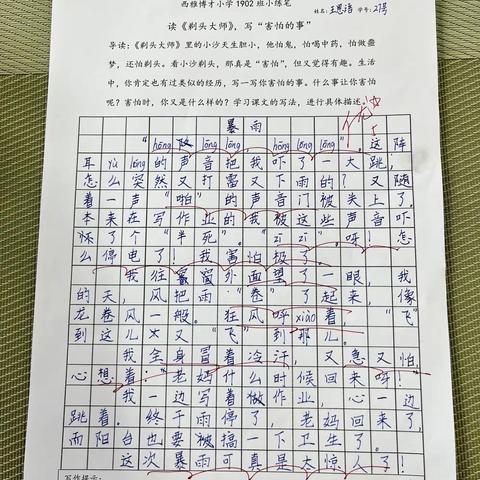 西雅博才小学 1902 班小练笔
姓名:王思涵 学号:27号
读《剃头大师》,写“害怕的事”
导读:《剃头大师》里的小沙天生胆小,他怕鬼,怕喝中药,怕做噩
梦,还怕剃头。看小沙剃头,那真是“害怕”,但又觉得有趣。生活
中,你肯定也有过类似的经历,写一写你害怕的事。什么事让你害怕
呢?害怕时,你又是什么样的?学习课文的写法,进行具体描述。
暴雨
“hōng lōng lōng hōng lōng lōng”,这阵
耳yù lóng的声音把我吓了一大跳,
怎么突然又打雷又下雨的?又随
着一声“啪”的声音门被关上了。
本来在写作业的我被这些声音吓
怀了个“半死”。“zī zī”,呀!怎
么停电了!我害怕极了。
我往窗外面望了一眼,我
的天,风把雨“卷”了起来,像
龙卷风一般。狂风呼xiào着,“飞”
到这儿又“飞”到那儿。
我全身冒着冷汗,又急又怕,
心想着:“老妈什么时候回来呀!”
我一边写着做作业,心一边
跳着。终于雨停了,老妈回来了,
而阳台也要被搞一下卫生了。
这次暴雨可真是太惊人了!
写作提示: